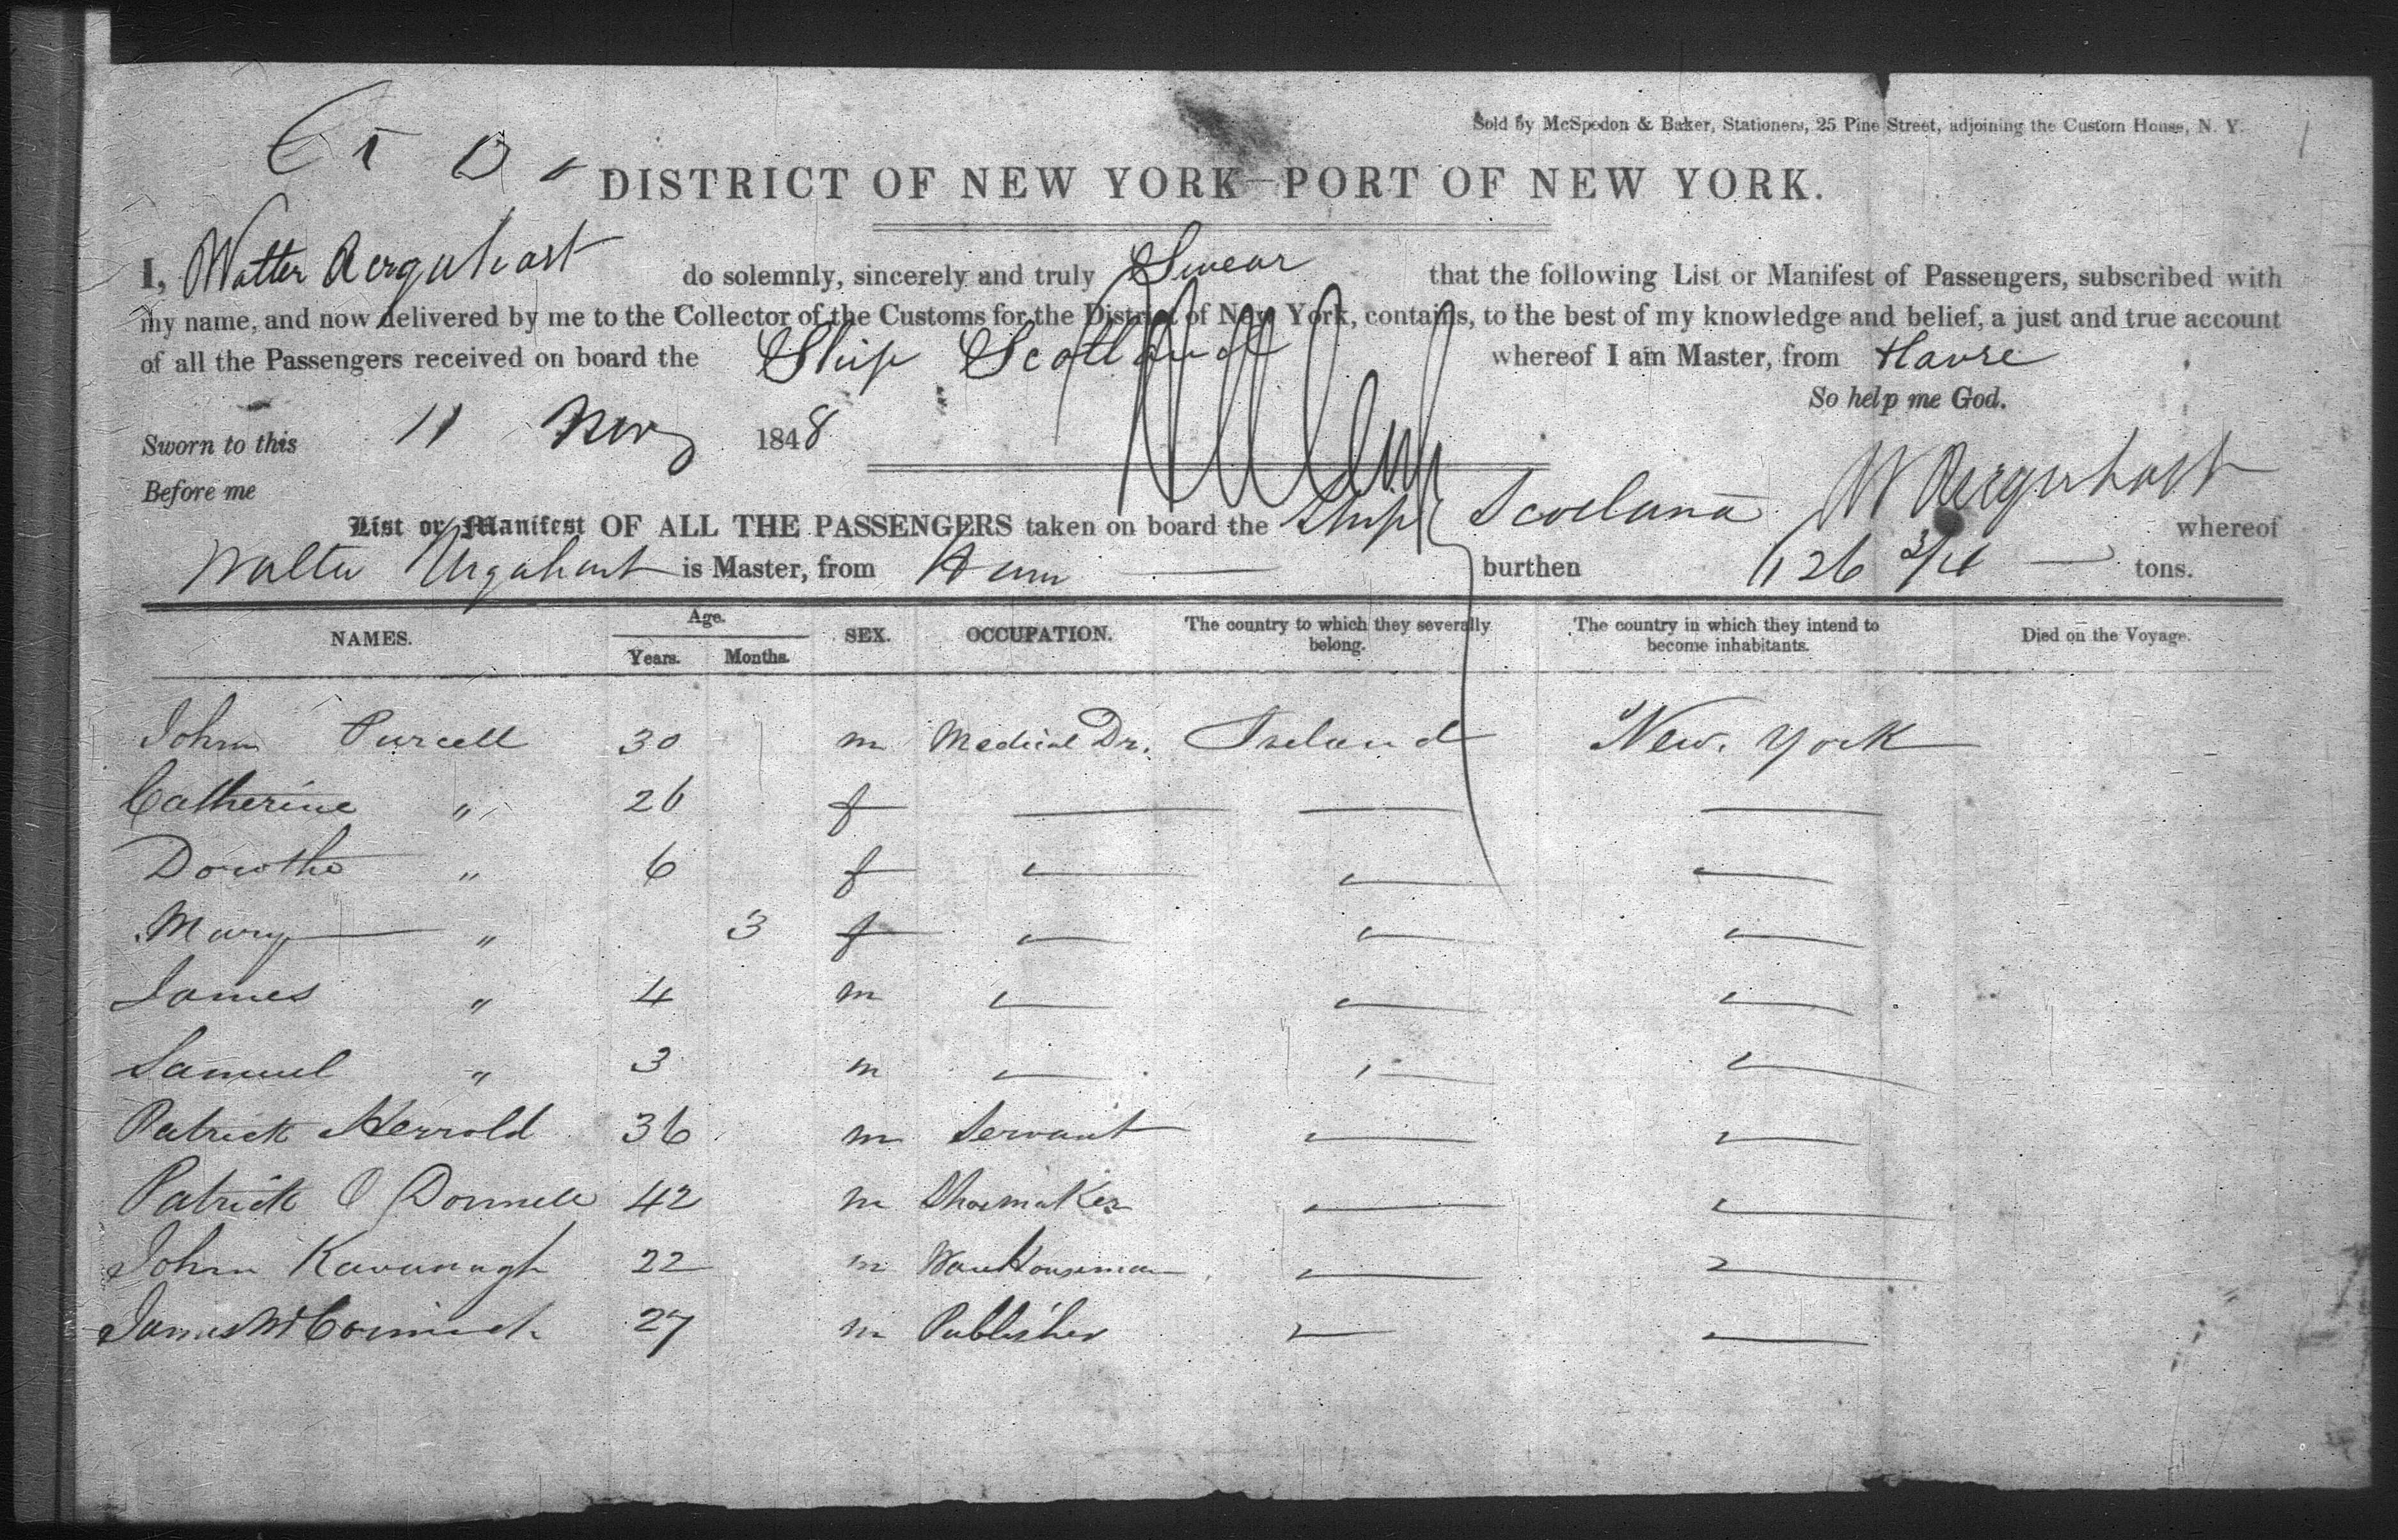 Sold by McSpedon & Baker, Stationers, 25 Pine Street, adjoining the Custom House, N. Y.
DISTRICT OF NEW YORK—PORT OF NEW YORK.
I, Walter Urquhart do solemnly, sincerely and truly Swear that the following List or Manifest of Passengers, subscribed with
my name, and now delivered by me to the Collector of the Customs for the District of New York, contains, to the best of my knowledge and belief, a just and true account
of all the Passengers received on board the Ship Scotland whereof I am Master, from Havre
So help me God.
Sworn to this 11 Nov 1848
Before me W Urquhart
List or Manifest OF ALL THE PASSENGERS taken on board the Ship Scotland whereof
Walter Urquhart is Master, from burthen tons.
NAMES. Age. Years. Months. SEX. OCCUPATION. The country to which they severally belong. The country in which they intend to become inhabitants. Died on the Voyage.
John Purcell 30 m Medical Dr. Ireland New York
Catherine " 26 f
Dorothe " 6 f
Mary " 3 f
James " 4 m
Samuel " 3 m
Patrick Herrold 36 m Servant
Patrick O Donnell 42 m Shoemaker
John Kavanagh 22 m Warehouseman
James McCormick 27 m Publisher